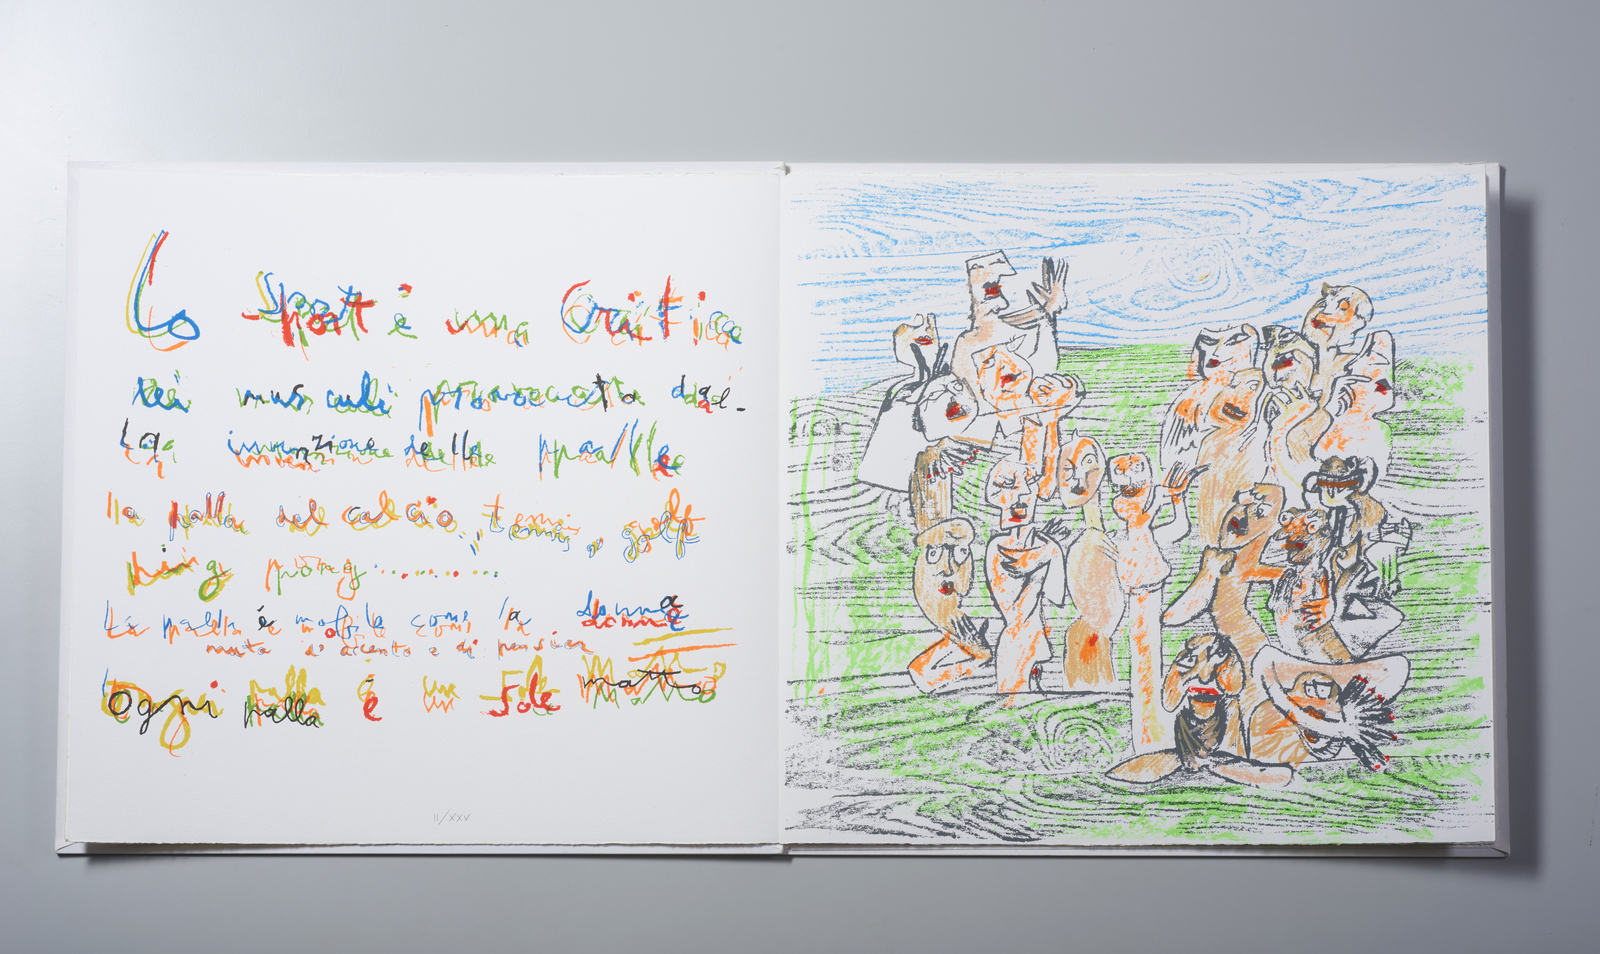 Lo Sport è una Critica
dei muscoli provocata da
invenzione delle palle
la palla nel calcio, tennis, golf
ping pong............
La palla è mobile come la donna
muta d'accento e di pensier
Ogni palla è un Sole matto
II/XXV